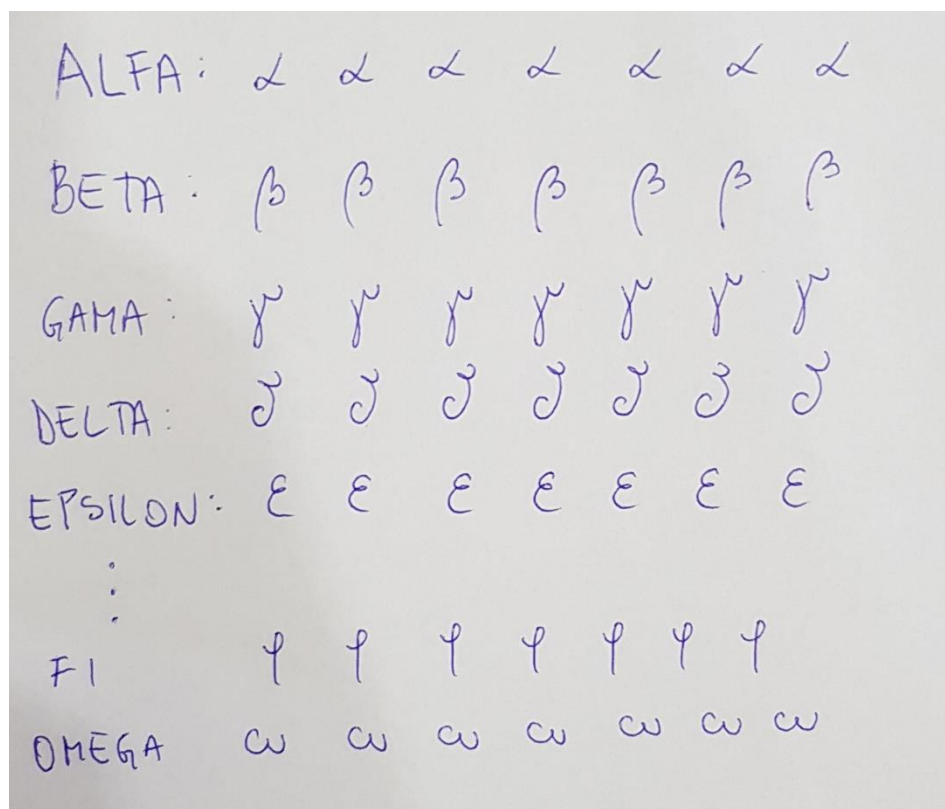 ALFA: α α α α α α α
BETA: β β β β β β β
GAMA: γ γ γ γ γ γ γ
DELTA: δ δ δ δ δ δ δ
EPSILON: ε ε ε ε ε ε ε
⋮
FI φ φ φ φ φ φ φ
OMEGA ω ω ω ω ω ω ω